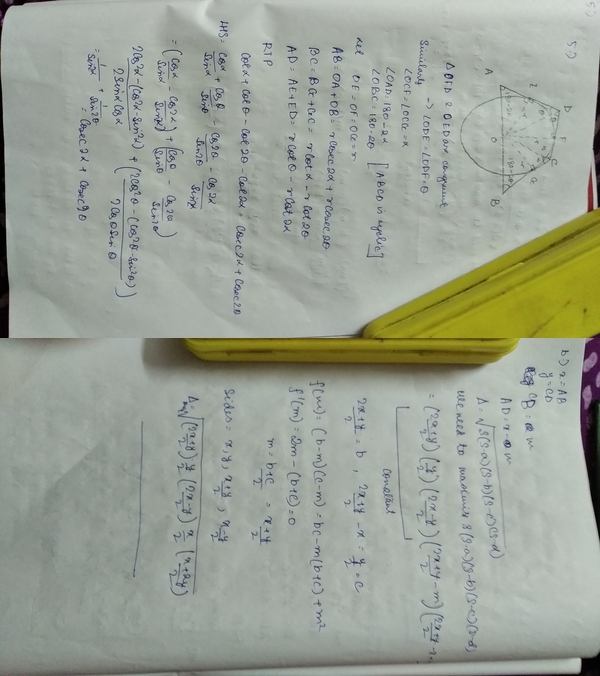 5)
A
E
D
F
C
G
B
O
Δ OFD & OED are congruent
Similarly → ∠ODE = ∠ODF = θ
∠OCF = ∠OCG = α
∠OAD = 180-2α
∠OBC = 180-2θ [ABCD is cyclic]
let OE = OF = OG = r
AB = OA + OB = r cosec2α + r cosec2θ
BC = BG + GC = r cotα - r cot2θ
AD = AE + ED = r cotθ - r cot2α
RTP
cotα + cotθ - cot2θ - cot2α = cosec2α + cosec2θ
LHS = cosα/sinα + cosθ/sinθ - cos2θ/sin2θ - cos2α/sin2α
= (cosα/sinα - cos2α/sin2α) + (cosθ/sinθ - cos2θ/sin2θ)
2cos²α - (cos²α - sin²α)/2sinα cosα + (2cos²θ - (cos²θ - sin²θ)/2cosθ sinθ)
= 1/sin2α + 1/sin2θ = cosec2α + cosec2θ
b) x = AB
y = CD
CB = m
AD = x - m
Δ = √(s-a)(s-b)(s-c)(s-d)
we need to maximise (s-a)(s-b)(s-c)(s-d)
= (2x+y/2) (y/2) (2x-y/2) (2x+y/2 - m)
constant
2x+y/2 = b, 2x+y/2 - x = y/2 = c
f(m) = (b-m)(c-m) = bc - m(b+c) + m²
f'(m) = 2m - (b+c) = 0
m = b+c/2 = x+y/2
Sides = x, y, x+y/2, x-y/2
Δmax = √(2x+y/2) y/2 (2x-y/2) x/2 (x+2y/2)